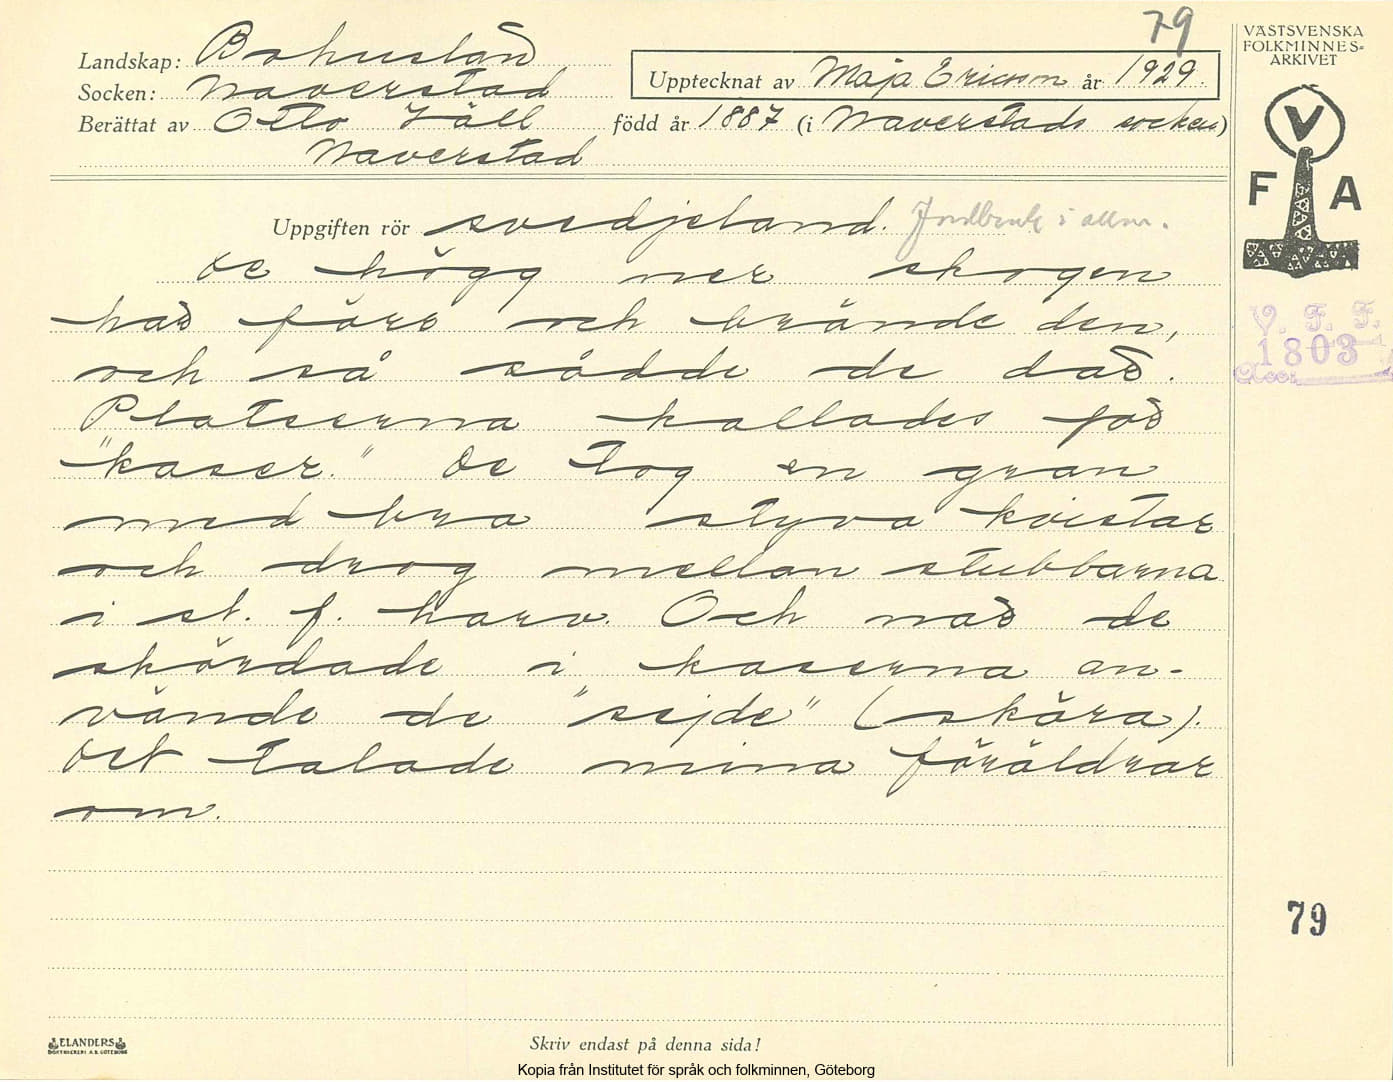 79
Landskap: Bohuslän
Socken: Naverstad
Berättat av Otto Häll
Naverstad
Upptecknat av Maja Ericson år 1929.
född år 1887 (i Naverstads socken)
VÄSTSVENSKA
FOLKMINNES-
ARKIVET
V
F A
V. F. F.
1803
Uppgiften rör svedjeland. Jordbruk i allm.
De högg ner skogen
här förr och brände den,
och så sådde de där.
Platserna kallades för
"kaser." De tog en gran
med bra styva kvistar
och drog mellan stubbarna
i st. f. harv. Och när de
skördade i kaserna an-
vände de "sejde" (skära).
Det talade mina föräldrar
om.
79
ELANDERS
BOKTRYCKERI A.B. GÖTEBORG
Skriv endast på denna sida!
Kopia från Institutet för språk och folkminnen, Göteborg